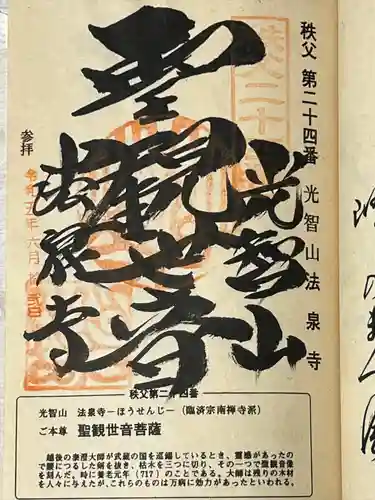 秩父 第二十四番 光智山 法泉寺
秩父二十
光智山
聖観世音
参拝
法泉寺
令和五年六月
秩父第二十四番
光智山 法泉寺―ほうせんじ―（臨済宗南禅寺派）
ご本尊 聖観世音菩薩
越後の泰澄大師が武蔵の国を巡錫しているとき、霊感があったの
で腰につるした剣を抜き、枯木を三つに切り、その一つで聖観音像
を刻んだ。時に養老元年（717）のことである。大師は残りの木材
を人々に与えたが、これらのものは万病に効力があったといわれる。